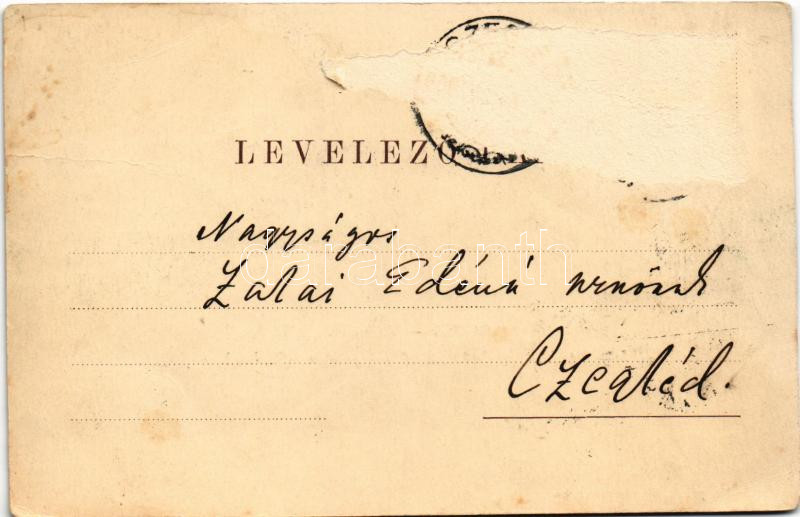 LEVELEZŐ
Nagyságos
Zalai Edéné urnőnek
Czegléd.
darabanth